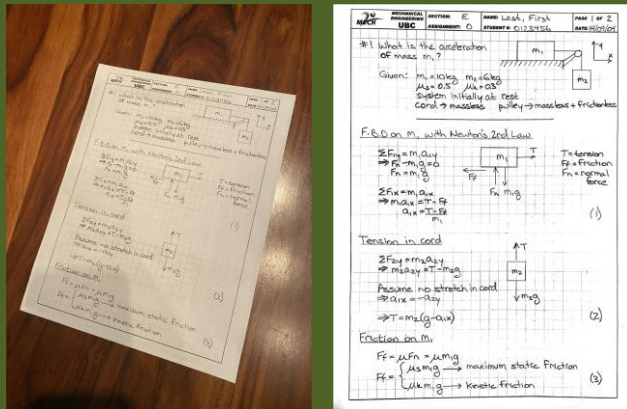 MECH
MECHANICAL ENGINEERING
UBC
SECTION: E
ASSIGNMENT: 0
NAME: Last, First
STUDENT #: 0123456
PAGE 1 OF 2
#1 What is the acceleration
of mass m₁?
m₁
y
x
m₂
Given: m₁=10kg m₂=6kg
μs=0.5 μk=0.3
system initially at rest
cord → massless pulley → massless + frictionless
F.B.D on m₁ with Newton's 2nd Law
ΣF₁y=m₁a₁y
⇒ Fn-m₁g=0
Fn=m₁g
m₁
T
Ff
Fn m₁g
T=tension
Ff=friction
Fn=normal
force
ΣF₁x=m₁a₁x
⇒ m₁a₁x=T-Ff
a₁x=T-Ff
m₁
(1)
Tension in cord
ΣF₂y=m₂a₂y
⇒ m₂a₂y=T-m₂g
T
m₂
m₂g
Assume no stretch in cord
⇒ a₁x=-a₂y
⇒ T=m₂(g-a₁x)
(2)
Friction on m₁
Ff=μFn=μm₁g
Ff= { μsm₁g → maximum static friction
μkm₁g → kinetic friction
(3)